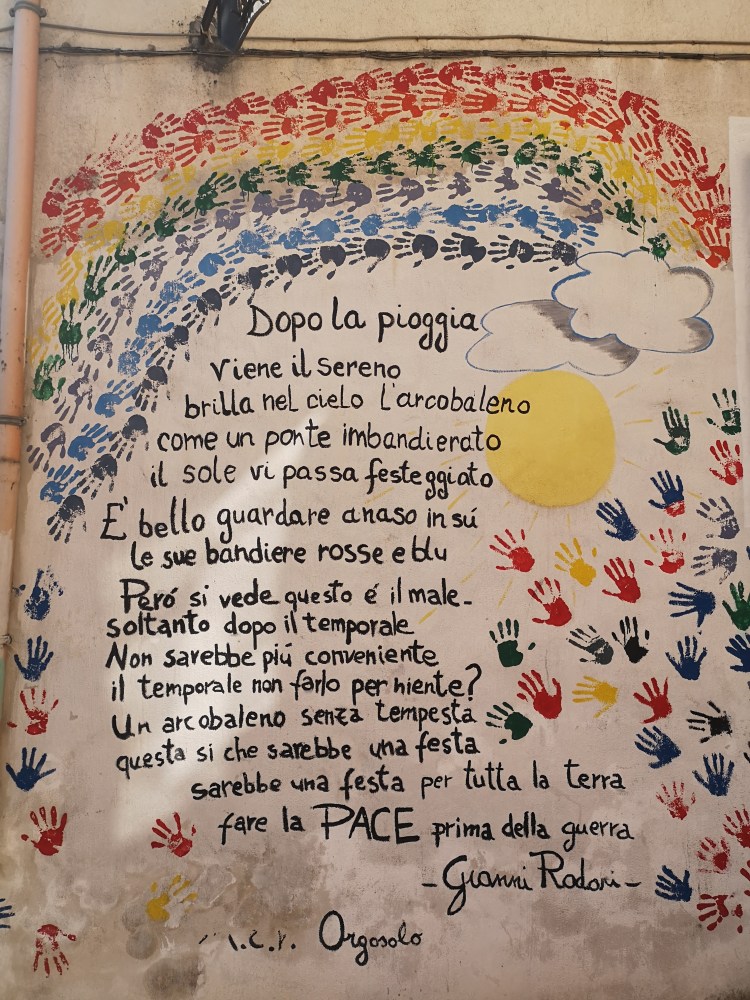 Dopo la pioggia
viene il sereno
brilla nel cielo l'arcobaleno
come un ponte imbandierato
il sole vi passa festeggiato
E' bello guardare a naso in sú
le sue bandiere rosse e blu
Peró si vede questo é il male
soltanto dopo il temporale
Non sarebbe piú conveniente
il temporale non farlo per niente?
Un arcobaleno senza tempesta
questa si che sarebbe una festa
sarebbe una festa per tutta la terra
fare la PACE prima della guerra
- Gianni Rodari -
Orgosolo